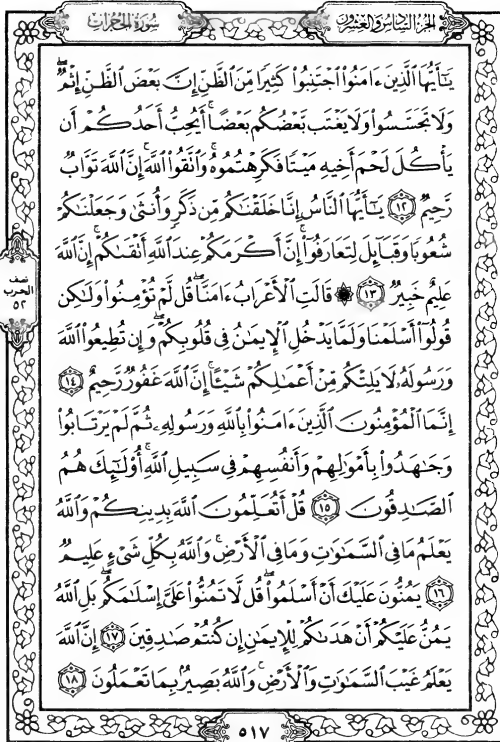 الجزء السادس والعشرون
سورة الحجرات
يَٰٓأَيُّهَا ٱلَّذِينَ ءَامَنُوا۟ ٱجْتَنِبُوا۟ كَثِيرًا مِّنَ ٱلظَّنِّ إِنَّ بَعْضَ ٱلظَّنِّ إِثْمٌ ۖ
وَلَا تَجَسَّسُوا۟ وَلَا يَغْتَب بَّعْضُكُم بَعْضًا ۚ أَيُحِبُّ أَحَدُكُمْ أَن
يَأْكُلَ لَحْمَ أَخِيهِ مَيْتًا فَكَرِهْتُمُوهُ ۚ وَٱتَّقُوا۟ ٱللَّهَ ۚ إِنَّ ٱللَّهَ تَوَّابٌ
رَّحِيمٌ ١٢ يَٰٓأَيُّهَا ٱلنَّاسُ إِنَّا خَلَقْنَٰكُم مِّن ذَكَرٍ وَأُنثَىٰ وَجَعَلْنَٰكُمْ
شُعُوبًا وَقَبَآئِلَ لِتَعَارَفُوٓا۟ ۚ إِنَّ أَكْرَمَكُمْ عِندَ ٱللَّهِ أَتْقَىٰكُمْ ۚ إِنَّ ٱللَّهَ
عَلِيمٌ خَبِيرٌ ١٣ ۞ قَالَتِ ٱلْأَعْرَابُ ءَامَنَّا ۖ قُل لَّمْ تُؤْمِنُوا۟ وَلَٰكِن
نصف
الحزب
٥٢
قُولُوٓا۟ أَسْلَمْنَا وَلَمَّا يَدْخُلِ ٱلْإِيمَٰنُ فِى قُلُوبِكُمْ ۖ وَإِن تُطِيعُوا۟ ٱللَّهَ
وَرَسُولَهُۥ لَا يَلِتْكُم مِّنْ أَعْمَٰلِكُمْ شَيْـًٔا ۚ إِنَّ ٱللَّهَ غَفُورٌ رَّحِيمٌ ١٤
إِنَّمَا ٱلْمُؤْمِنُونَ ٱلَّذِينَ ءَامَنُوا۟ بِٱللَّهِ وَرَسُولِهِۦ ثُمَّ لَمْ يَرْتَابُوا۟
وَجَٰهَدُوا۟ بِأَمْوَٰلِهِمْ وَأَنفُسِهِمْ فِى سَبِيلِ ٱللَّهِ ۚ أُو۟لَٰٓئِكَ هُمُ
ٱلصَّٰدِقُونَ ١٥ قُلْ أَتُعَلِّمُونَ ٱللَّهَ بِدِينِكُمْ وَٱللَّهُ
يَعْلَمُ مَا فِى ٱلسَّمَٰوَٰتِ وَمَا فِى ٱلْأَرْضِ ۚ وَٱللَّهُ بِكُلِّ شَىْءٍ عَلِيمٌ
١٦ يَمُنُّونَ عَلَيْكَ أَنْ أَسْلَمُوا۟ ۖ قُل لَّا تَمُنُّوا۟ عَلَىَّ إِسْلَٰمَكُم ۖ بَلِ ٱللَّهُ
يَمُنُّ عَلَيْكُمْ أَنْ هَدَىٰكُمْ لِلْإِيمَٰنِ إِن كُنتُمْ صَٰدِقِينَ ١٧ إِنَّ ٱللَّهَ
يَعْلَمُ غَيْبَ ٱلسَّمَٰوَٰتِ وَٱلْأَرْضِ ۚ وَٱللَّهُ بَصِيرٌۢ بِمَا تَعْمَلُونَ ١٨
٥١٧